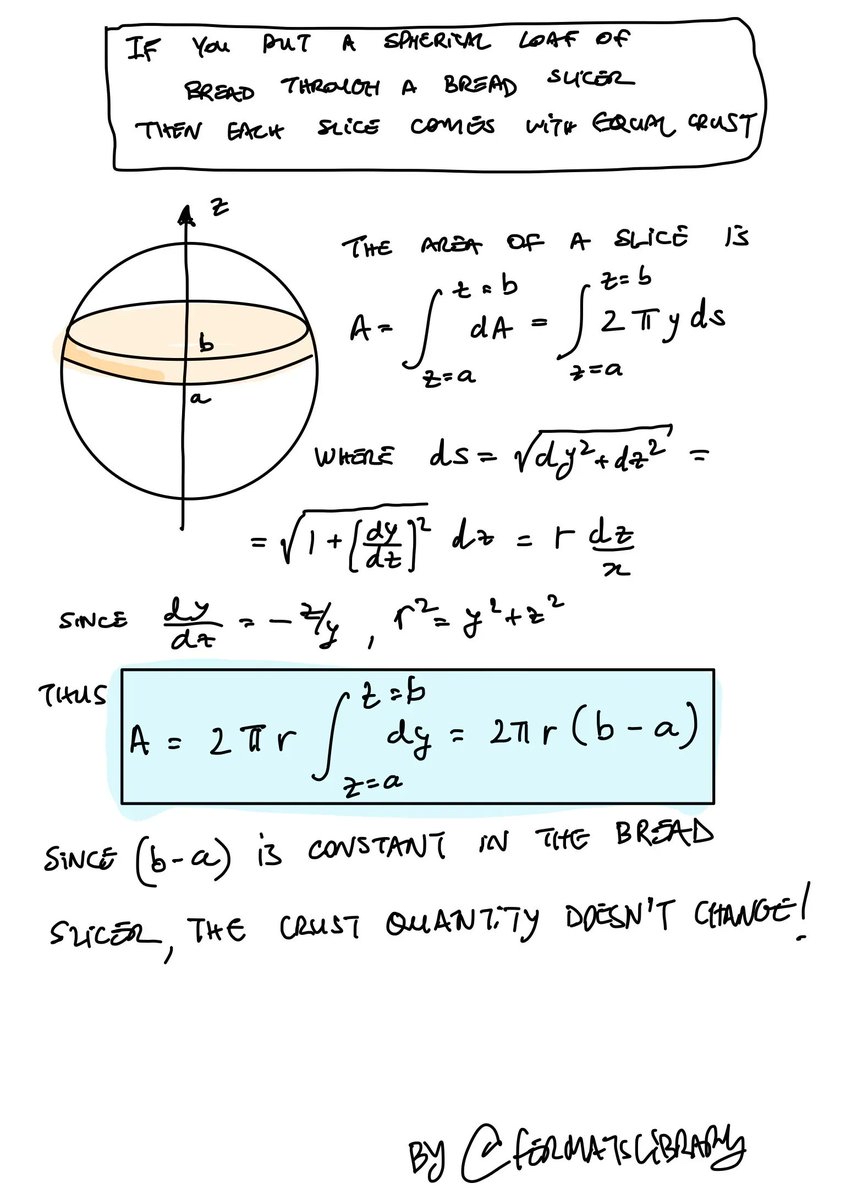 IF YOU PUT A SPHERICAL LOAF OF
BREAD THROUGH A BREAD SLICER
THEN EACH SLICE COMES WITH EQUAL CRUST
z
THE AREA OF A SLICE IS
A = ∫_{z=a}^{z=b} dA = ∫_{z=a}^{z=b} 2πy ds
b
a
WHERE ds = √(dy² + dz²) =
= √(1 + [dy/dz]²) dz = r dz/x
SINCE dy/dz = - z/y , r² = y² + z²
THUS A = 2πr ∫_{z=a}^{z=b} dy = 2πr (b - a)
SINCE (b-a) IS CONSTANT IN THE BREAD
SLICER, THE CRUST QUANTITY DOESN'T CHANGE!
BY @FERMATSLIBRARY